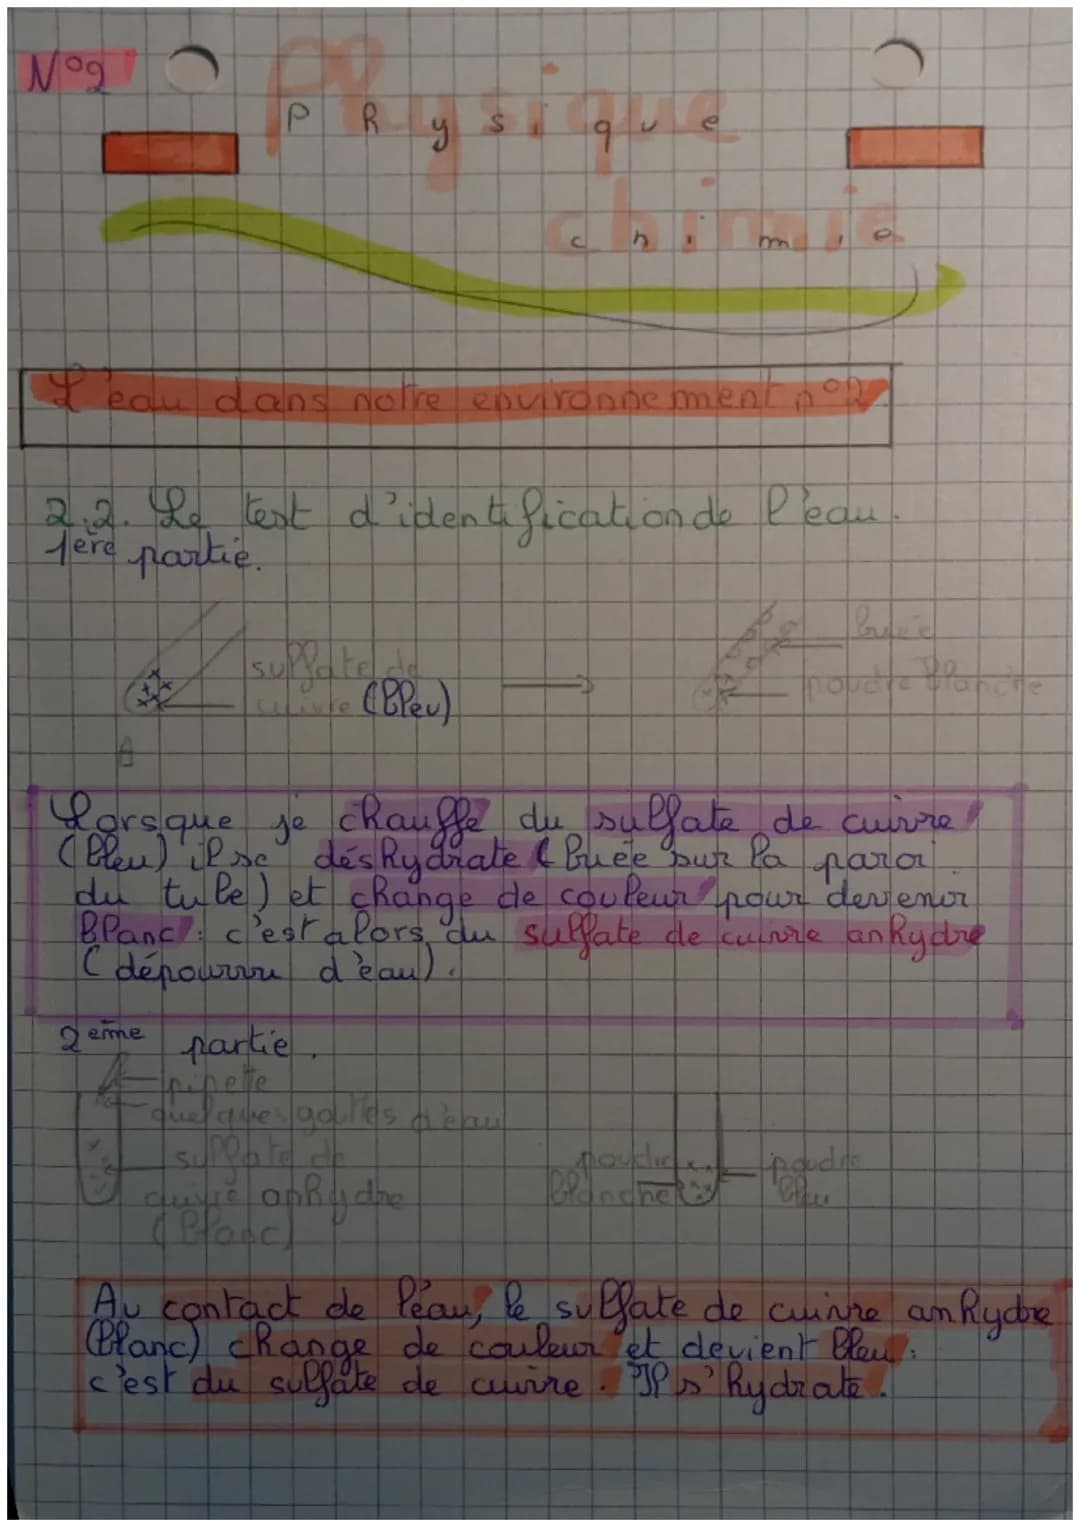 N°2
Physique
chimie
L'eau dans notre environnement n°2
2.2. Le test d'identification de l'eau.
1ère partie.
sulfate de
cuivre (bleu)
buée
poudre blanche
A
Lorsque je chauffe du sulfate de cuivre
(bleu) il se déshydrate (buée sur la paroi
du tube) et change de couleur pour devenir
blanc : c'est alors du sulfate de cuivre anhydre
(dépourvu d'eau).
2ème partie.
pipette
quelques gouttes d'eau
sulfate de
cuivre anhydre
(blanc)
poudre
blanche
poudre
bleu
Au contact de l'éau, le sulfate de cuivre anhydre
(blanc) change de couleur et devient bleu :
c'est du sulfate de cuivre. Il s'hydrate.